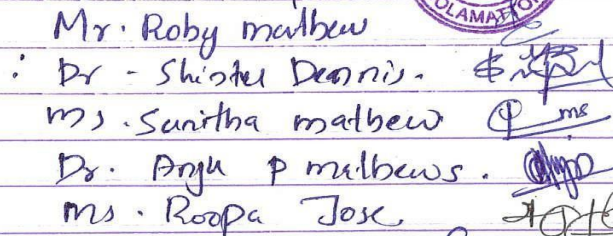 OLAMATTOM
Mr. Roby mathew
: Dr - Shinter Dennis.
ms. Sunitha mathew ms
Dr. Anju P mathews. Anju
ms. Roopa Jose